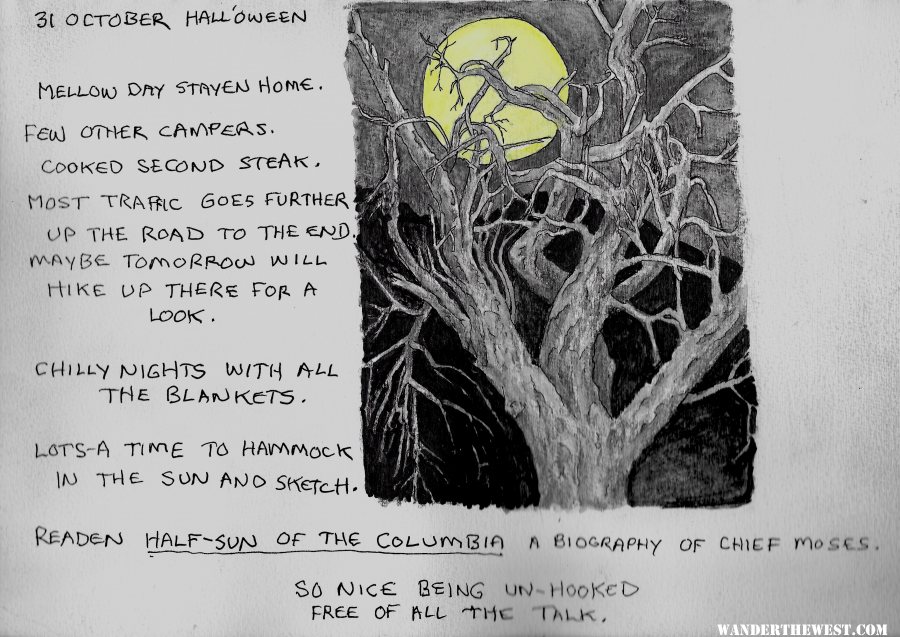 31 OCTOBER HALL'OWEEN
MELLOW DAY STAYEN HOME.
FEW OTHER CAMPERS.
COOKED SECOND STEAK.
MOST TRAFFIC GOES FURTHER
UP THE ROAD TO THE END.
MAYBE TOMORROW WILL
HIKE UP THERE FOR A
LOOK.
CHILLY NIGHTS WITH ALL
THE BLANKETS.
LOTS-A TIME TO HAMMOCK
IN THE SUN AND SKETCH.
READEN HALF-SUN OF THE COLUMBIA A BIOGRAPHY OF CHIEF MOSES.
SO NICE BEING UN-HOOKED
FREE OF ALL THE TALK.
WANDERTHEWEST.COM